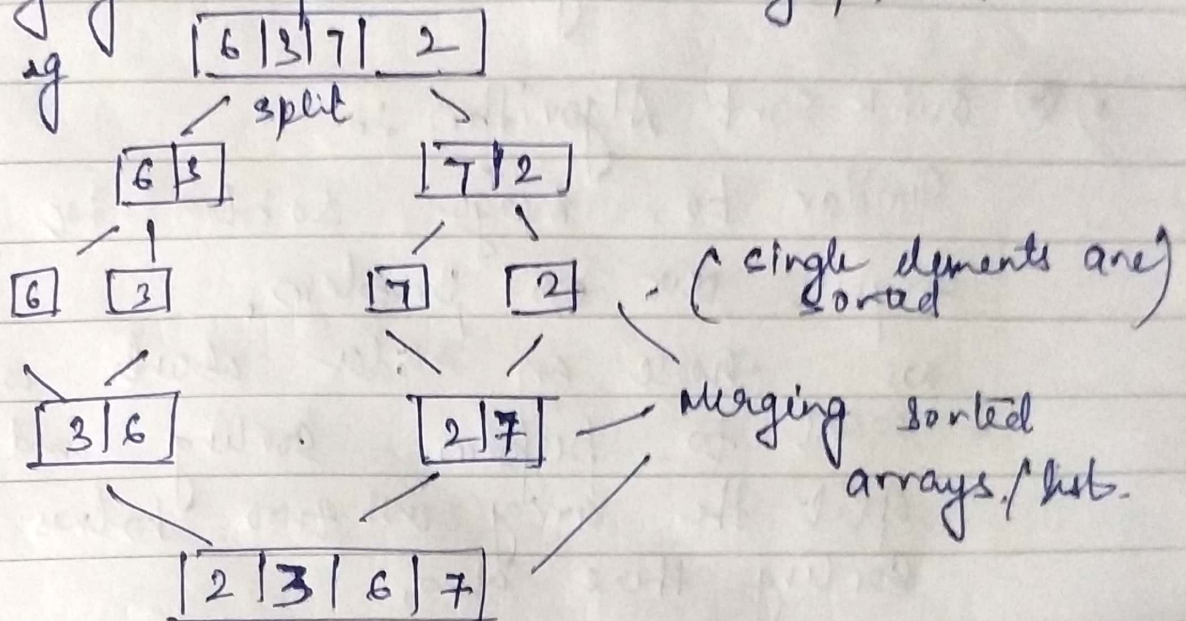 eg
6 | 3 | 7 | 2
split
6 | 3
7 | 2
6
3
7
2
(single elements are sorted)
3 | 6
2 | 7
Merging sorted
arrays / list.
2 | 3 | 6 | 7